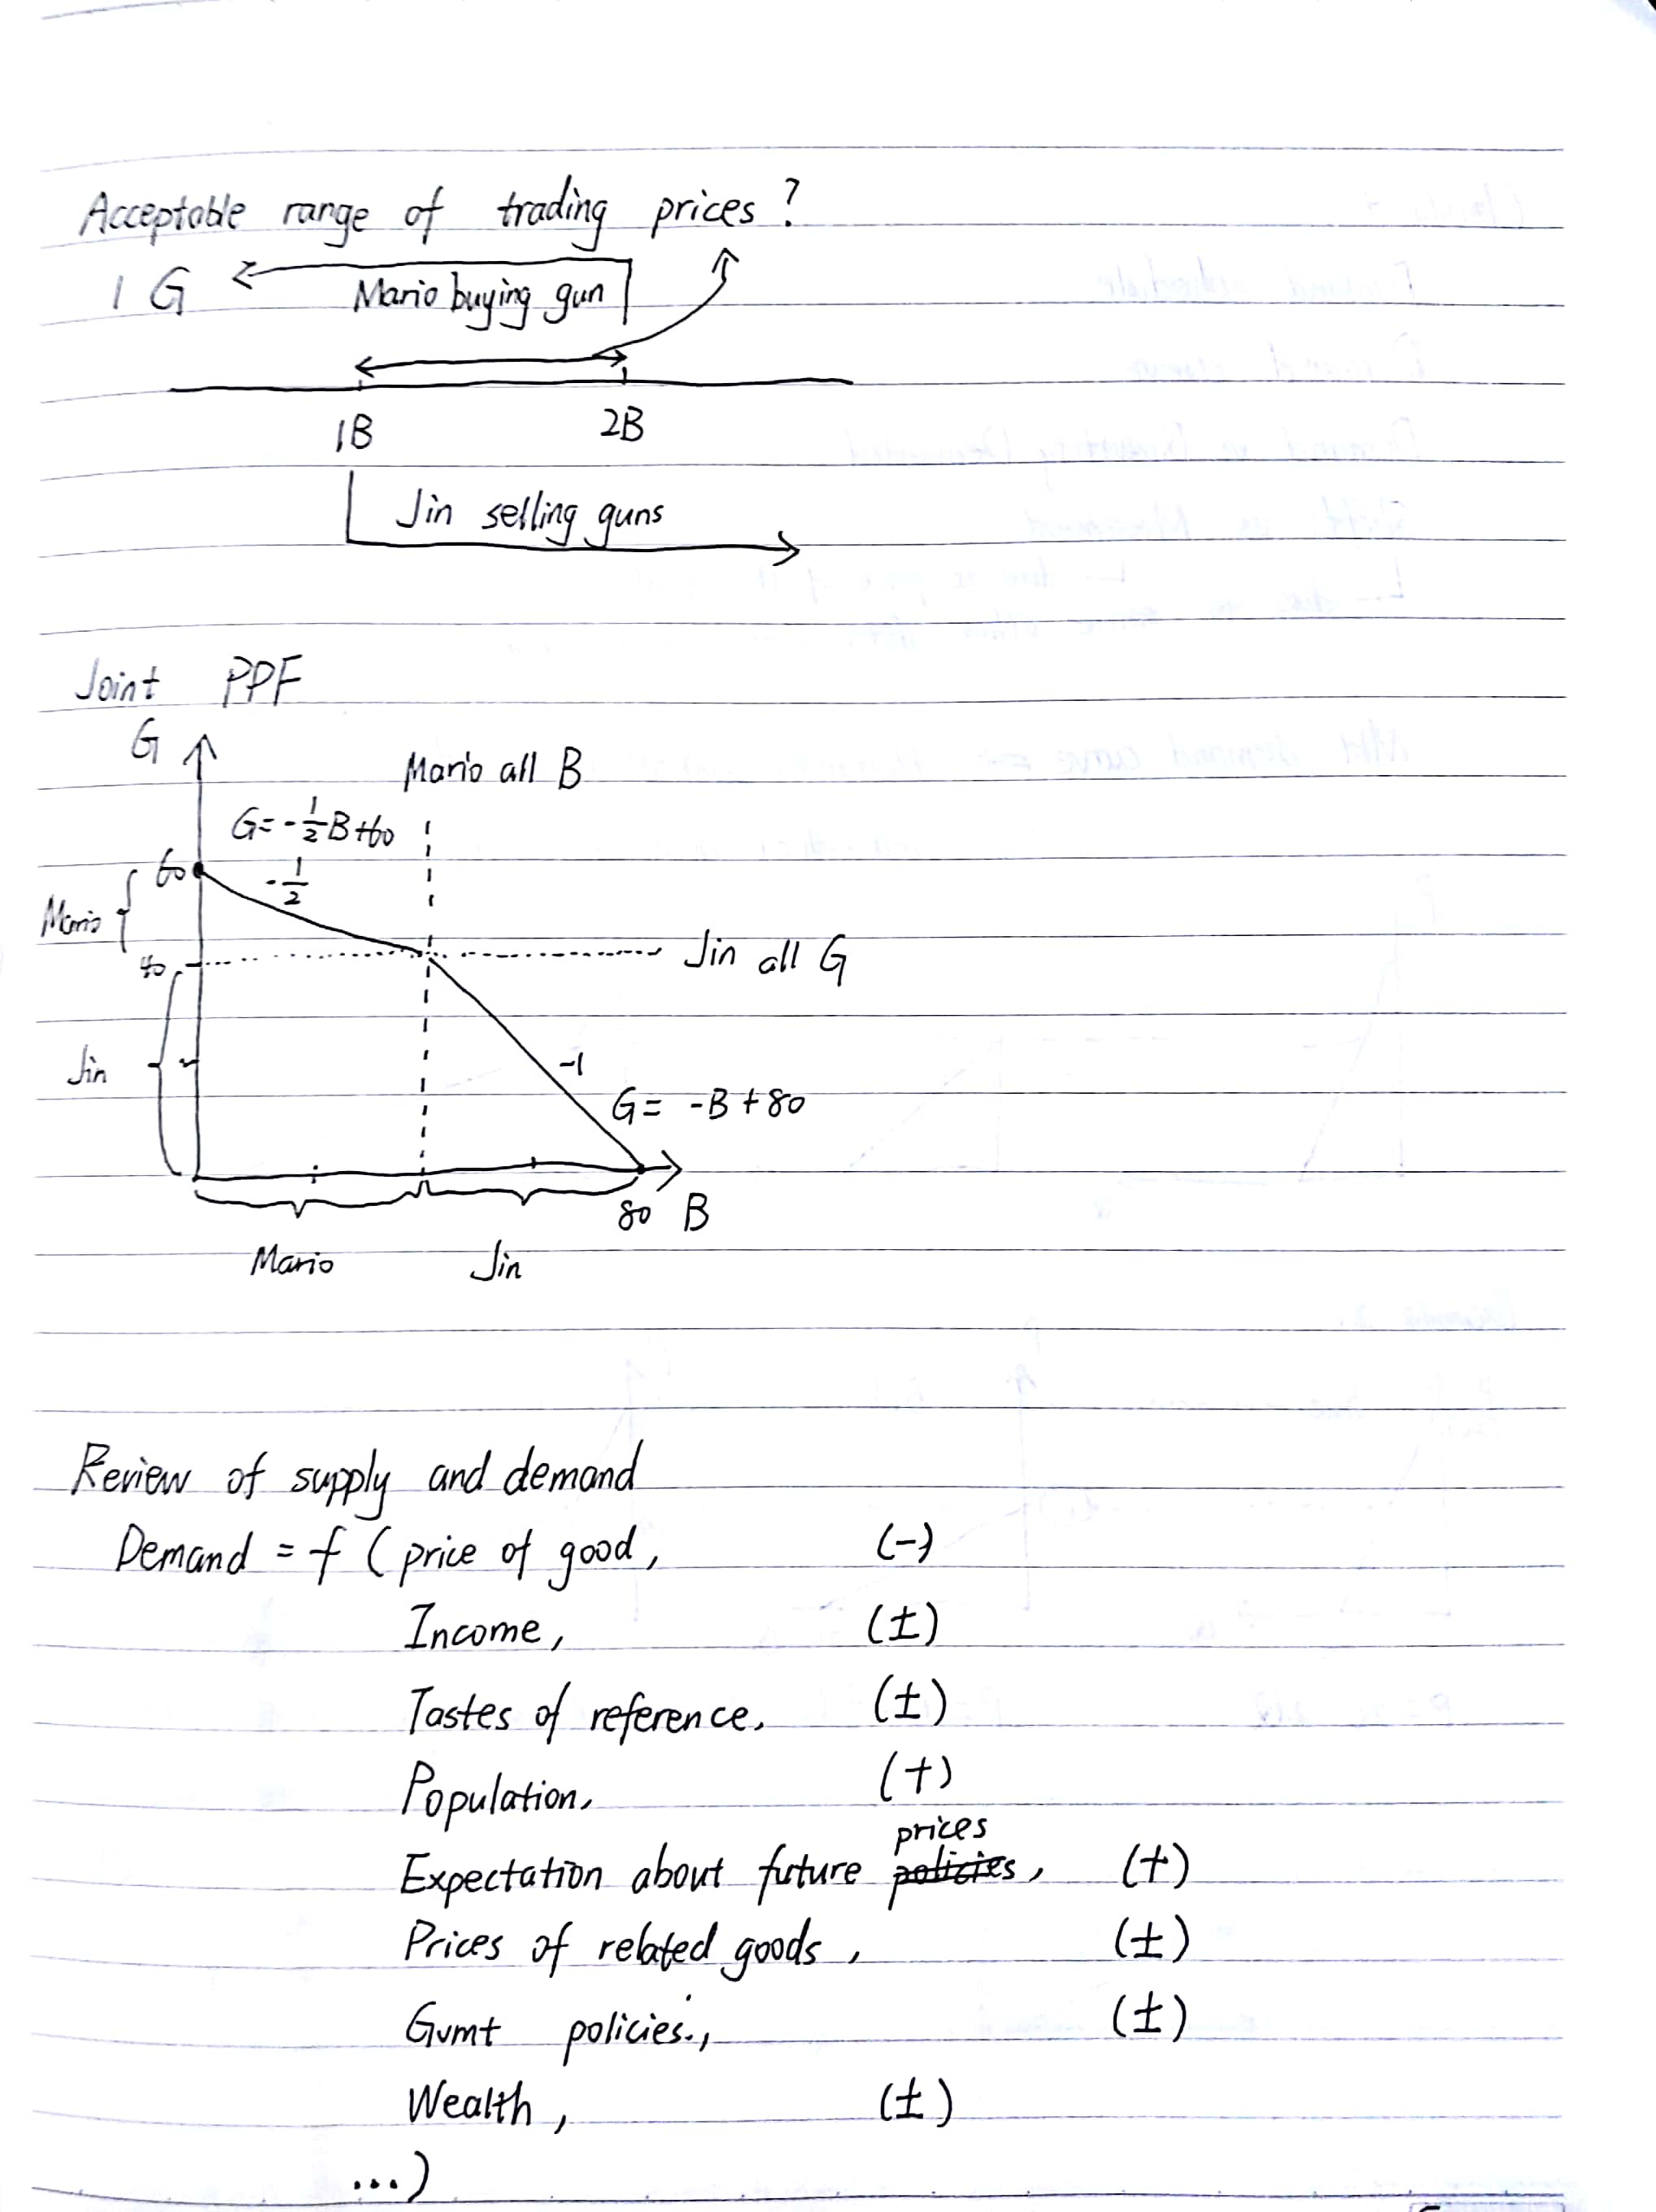 Acceptable range of trading prices?
1 G
Mario buying gun
1B
2B
Jin selling guns
Joint PPF
G
Mario all B
G=-1/2B+60
60
-1/2
Mario
40
Jin all G
Jin
-1
G= -B+80
80 B
Mario Jin
Review of supply and demand
Demand = f (price of good, (-)
Income, (±)
Tastes of reference, (±)
Population, (+)
prices
Expectation about future policies, (+)
Prices of related goods, (±)
Gvmt policies., (±)
Wealth, (±)
...)